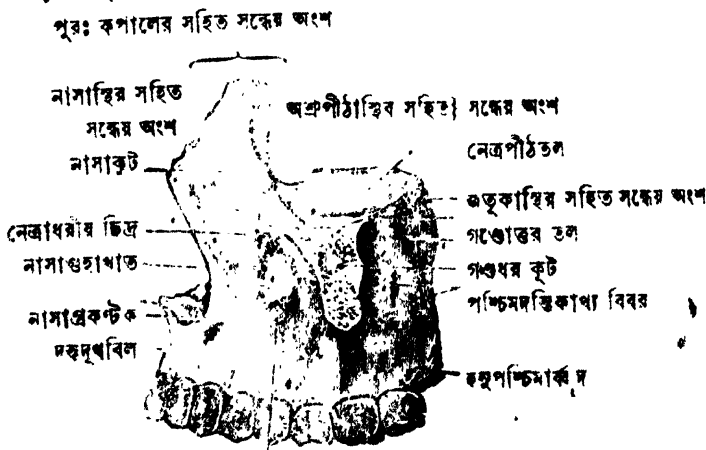 পুরঃ কপালের সহিত সন্ধেয় অংশ
নাসাস্থির সহিত
সন্ধেয় অংশ
নাসাকূট
নেত্রাধরীয় ছিদ্র
নাসাগুহাখাত
নাসাপ্রকণ্টক
দন্তদূখবিল
অশ্রুপীঠাস্থির সহিত সন্ধেয় অংশ
নেত্রপীঠতল
জতুকাস্থির সহিত সন্ধেয় অংশ
গণ্ডোত্তর তল
গণ্ডধর কূট
পশ্চিমদন্তিকাখ্য বিবর
হনুপশ্চিমার্ব্বুদ